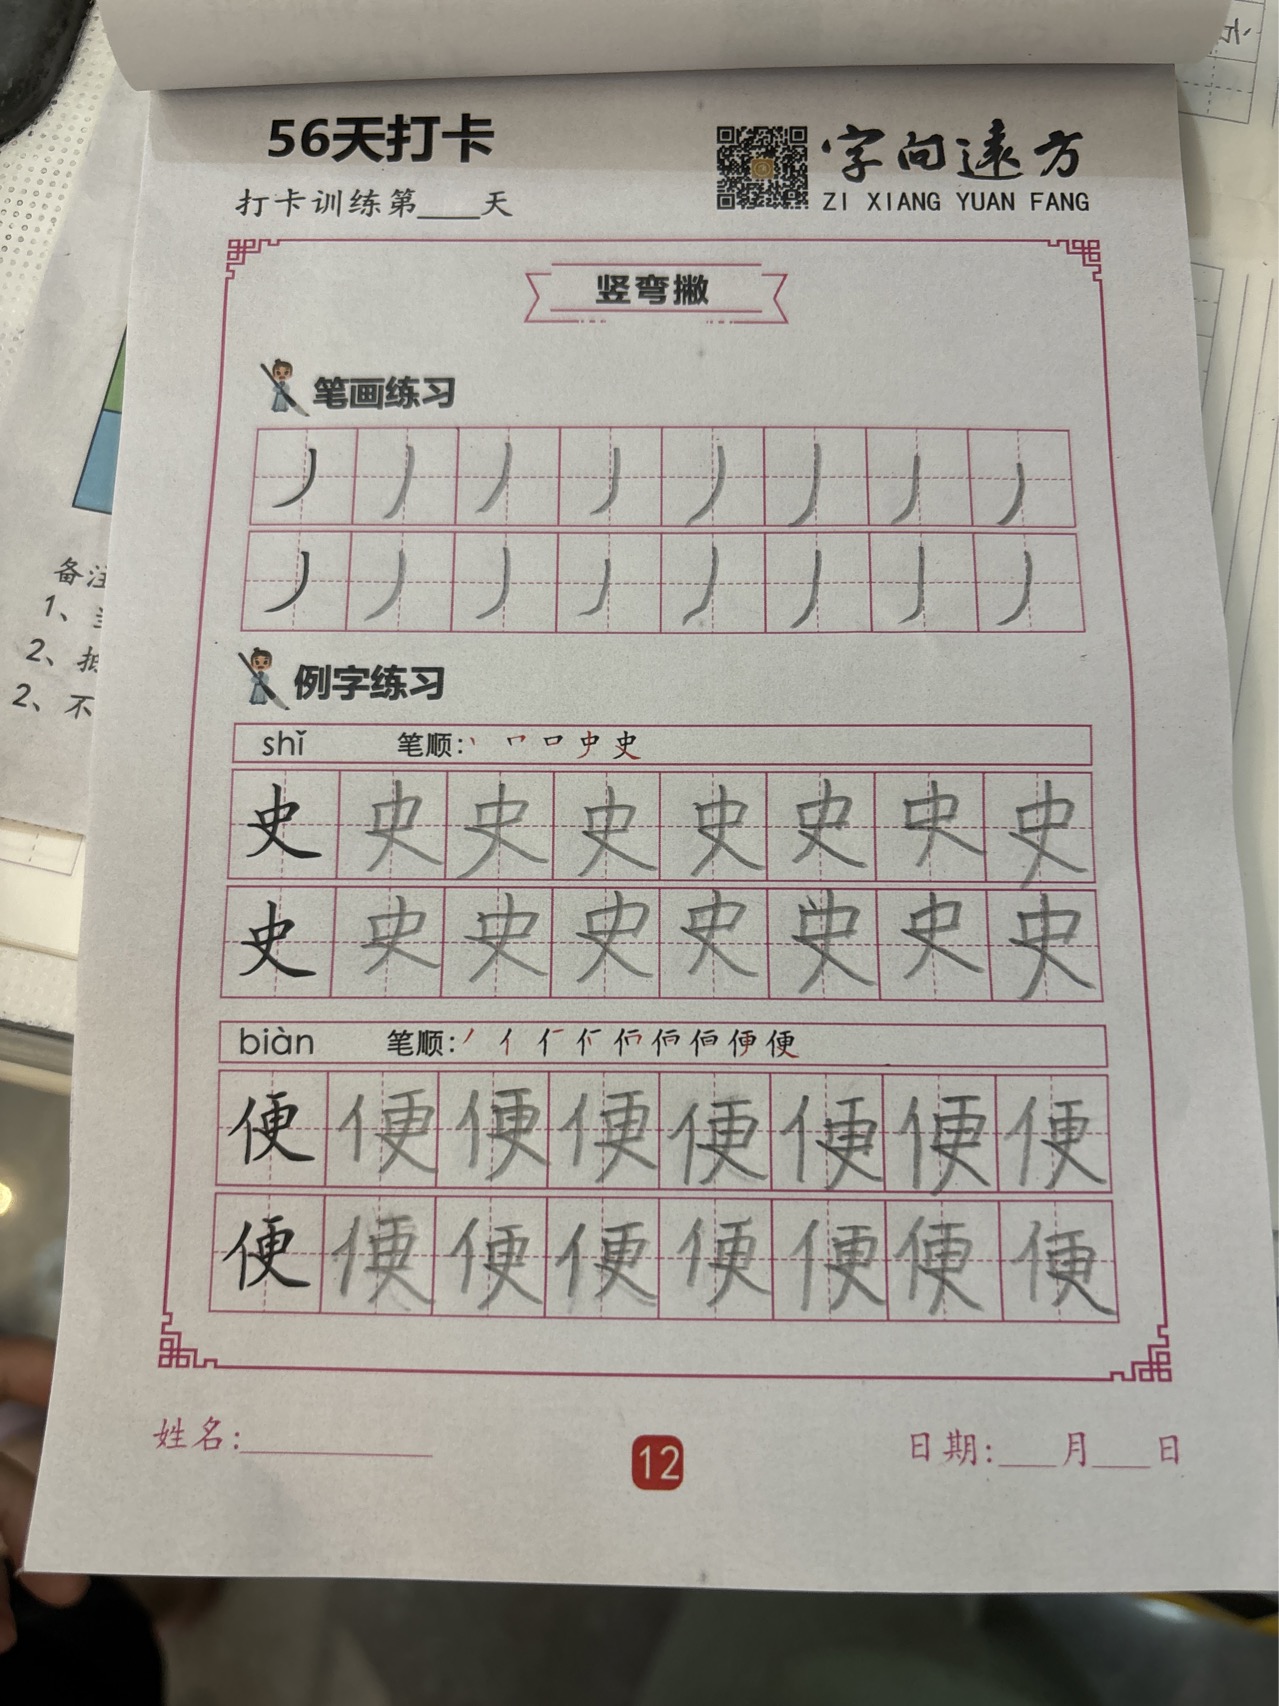 56天打卡
字向远方
打卡训练第____天
ZI XIANG YUAN FANG
竖弯撇
笔画练习
丿 丿 丿 丿 丿 丿 丿 丿
丿 丿 丿 丿 丿 丿 丿 丿
备注
1、
2、抵
2、不
例字练习
shǐ 笔顺: 丶 𠃍 口 史 史
史 史 史 史 史 史 史 史
史 史 史 史 史 史 史 史
biàn 笔顺: 丿 亻 便
便 便 便 便 便 便 便 便
便 便 便 便 便 便 便 便
姓名:__________
12
日期:___月___日